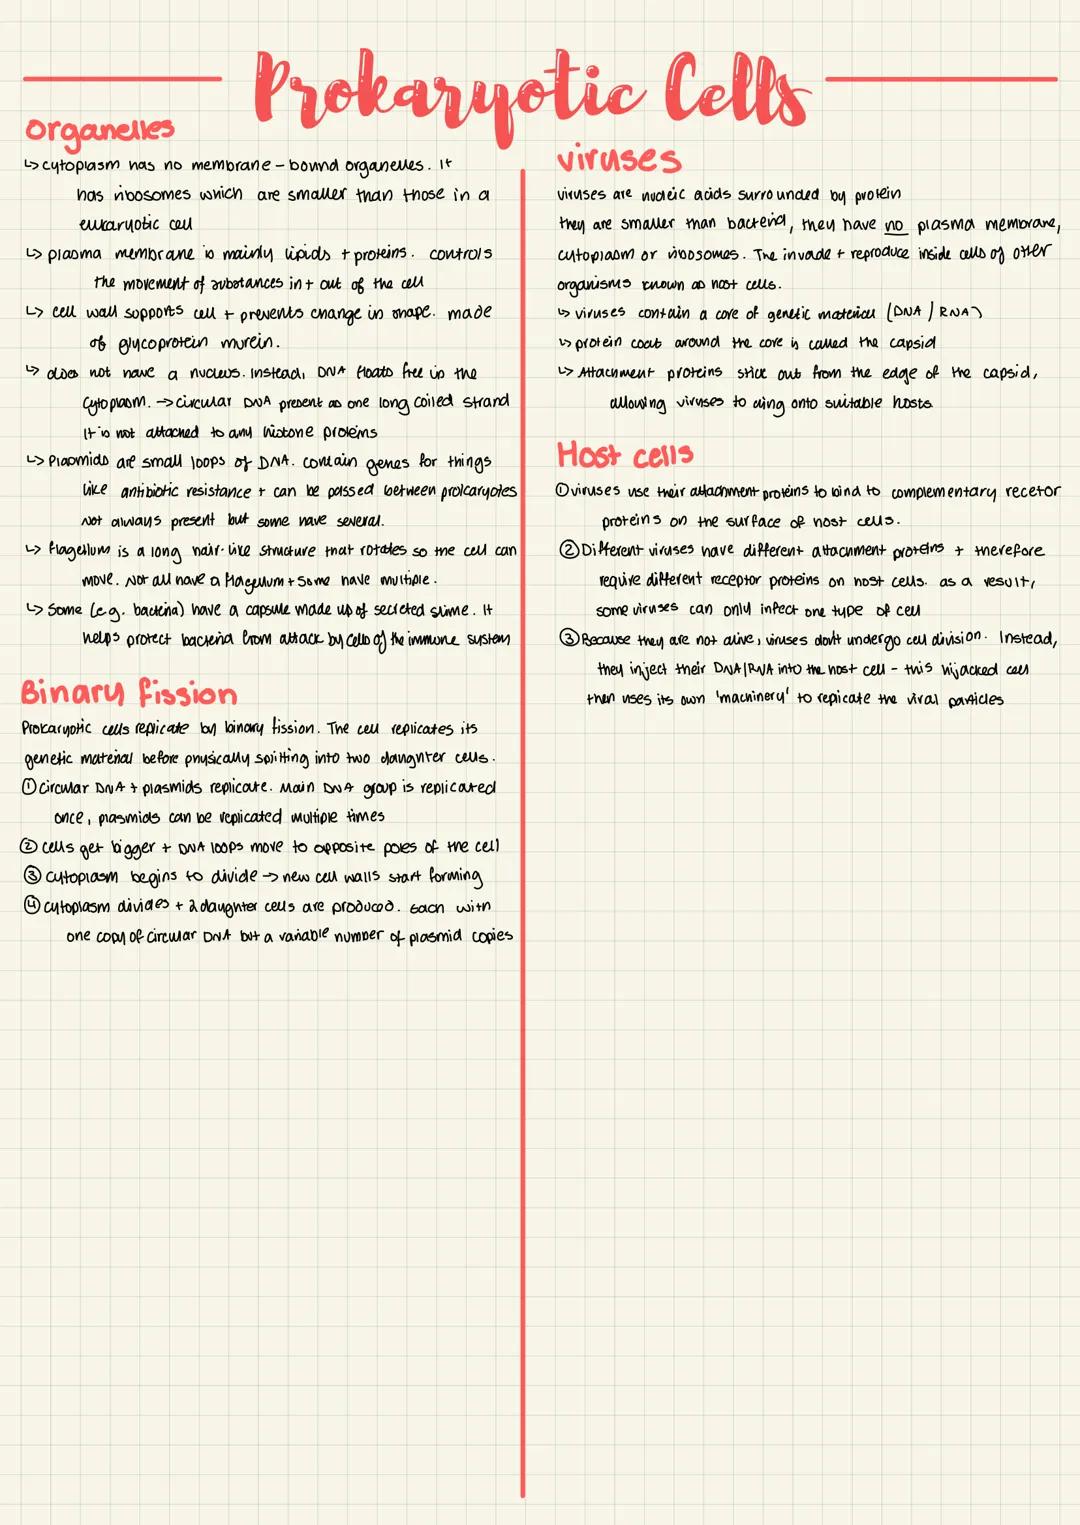 Prokaryotic Cells
Organelles
↳ cytoplasm has no membrane - bound organelles. It
has ribosomes which are smaller than those in a
eukaryotic cell
↳ plasma membrane is mainly lipids + proteins. controls
the movement of substances in + out of the cell
↳ cell wall supports cell + prevents change in shape. made
of glycoprotein murein.
↳ does not have a nucleus. Instead, DNA floats free in the
cytoplasm. → circular DNA present as one long coiled strand
It is not attached to any histone proteins
↳ Plasmids are small loops of DNA. contain genes for things
like antibiotic resistance + can be passed between prokaryotes
Not always present but some have several.
↳ flagellum is a long hair-like structure that rotates so the cell can
move. Not all have a flagellum + some have multiple.
↳ Some (e.g. bacteria) have a capsule made up of secreted slime. It
helps protect bacteria from attack by cells of the immune system
Binary fission
Prokaryotic cells replicate by binary fission. The cell replicates its
genetic material before physically splitting into two daughter cells.
① circular DNA + plasmids replicate. Main DNA group is replicated
once, plasmids can be replicated multiple times
② cells get bigger + DNA loops move to opposite poles of the cell
③ cytoplasm begins to divide → new cell walls start forming
④ cytoplasm divides + 2 daughter cells are produced. Each with
one copy of circular DNA but a variable number of plasmid copies
viruses
viruses are nucleic acids surrounded by protein
they are smaller than bacteria, they have no plasma membrane,
cytoplasm or ribosomes. The invade + reproduce inside cells of other
organisms known as host cells.
↳ viruses contain a core of genetic material (DNA / RNA)
↳ protein coat around the core is called the capsid
↳ Attachment proteins stick out from the edge of the capsid,
allowing viruses to cling onto suitable hosts
Host cells
① viruses use their attachment proteins to bind to complementary recetor
proteins on the surface of host cells.
② Different viruses have different attachment proteins + therefore
require different receptor proteins on host cells. as a result,
some viruses can only infect one type of cell
③ Because they are not alive, viruses don't undergo cell division. Instead,
they inject their DNA/RNA into the host cell - this hijacked cell
then uses its own 'machinery' to replicate the viral particles